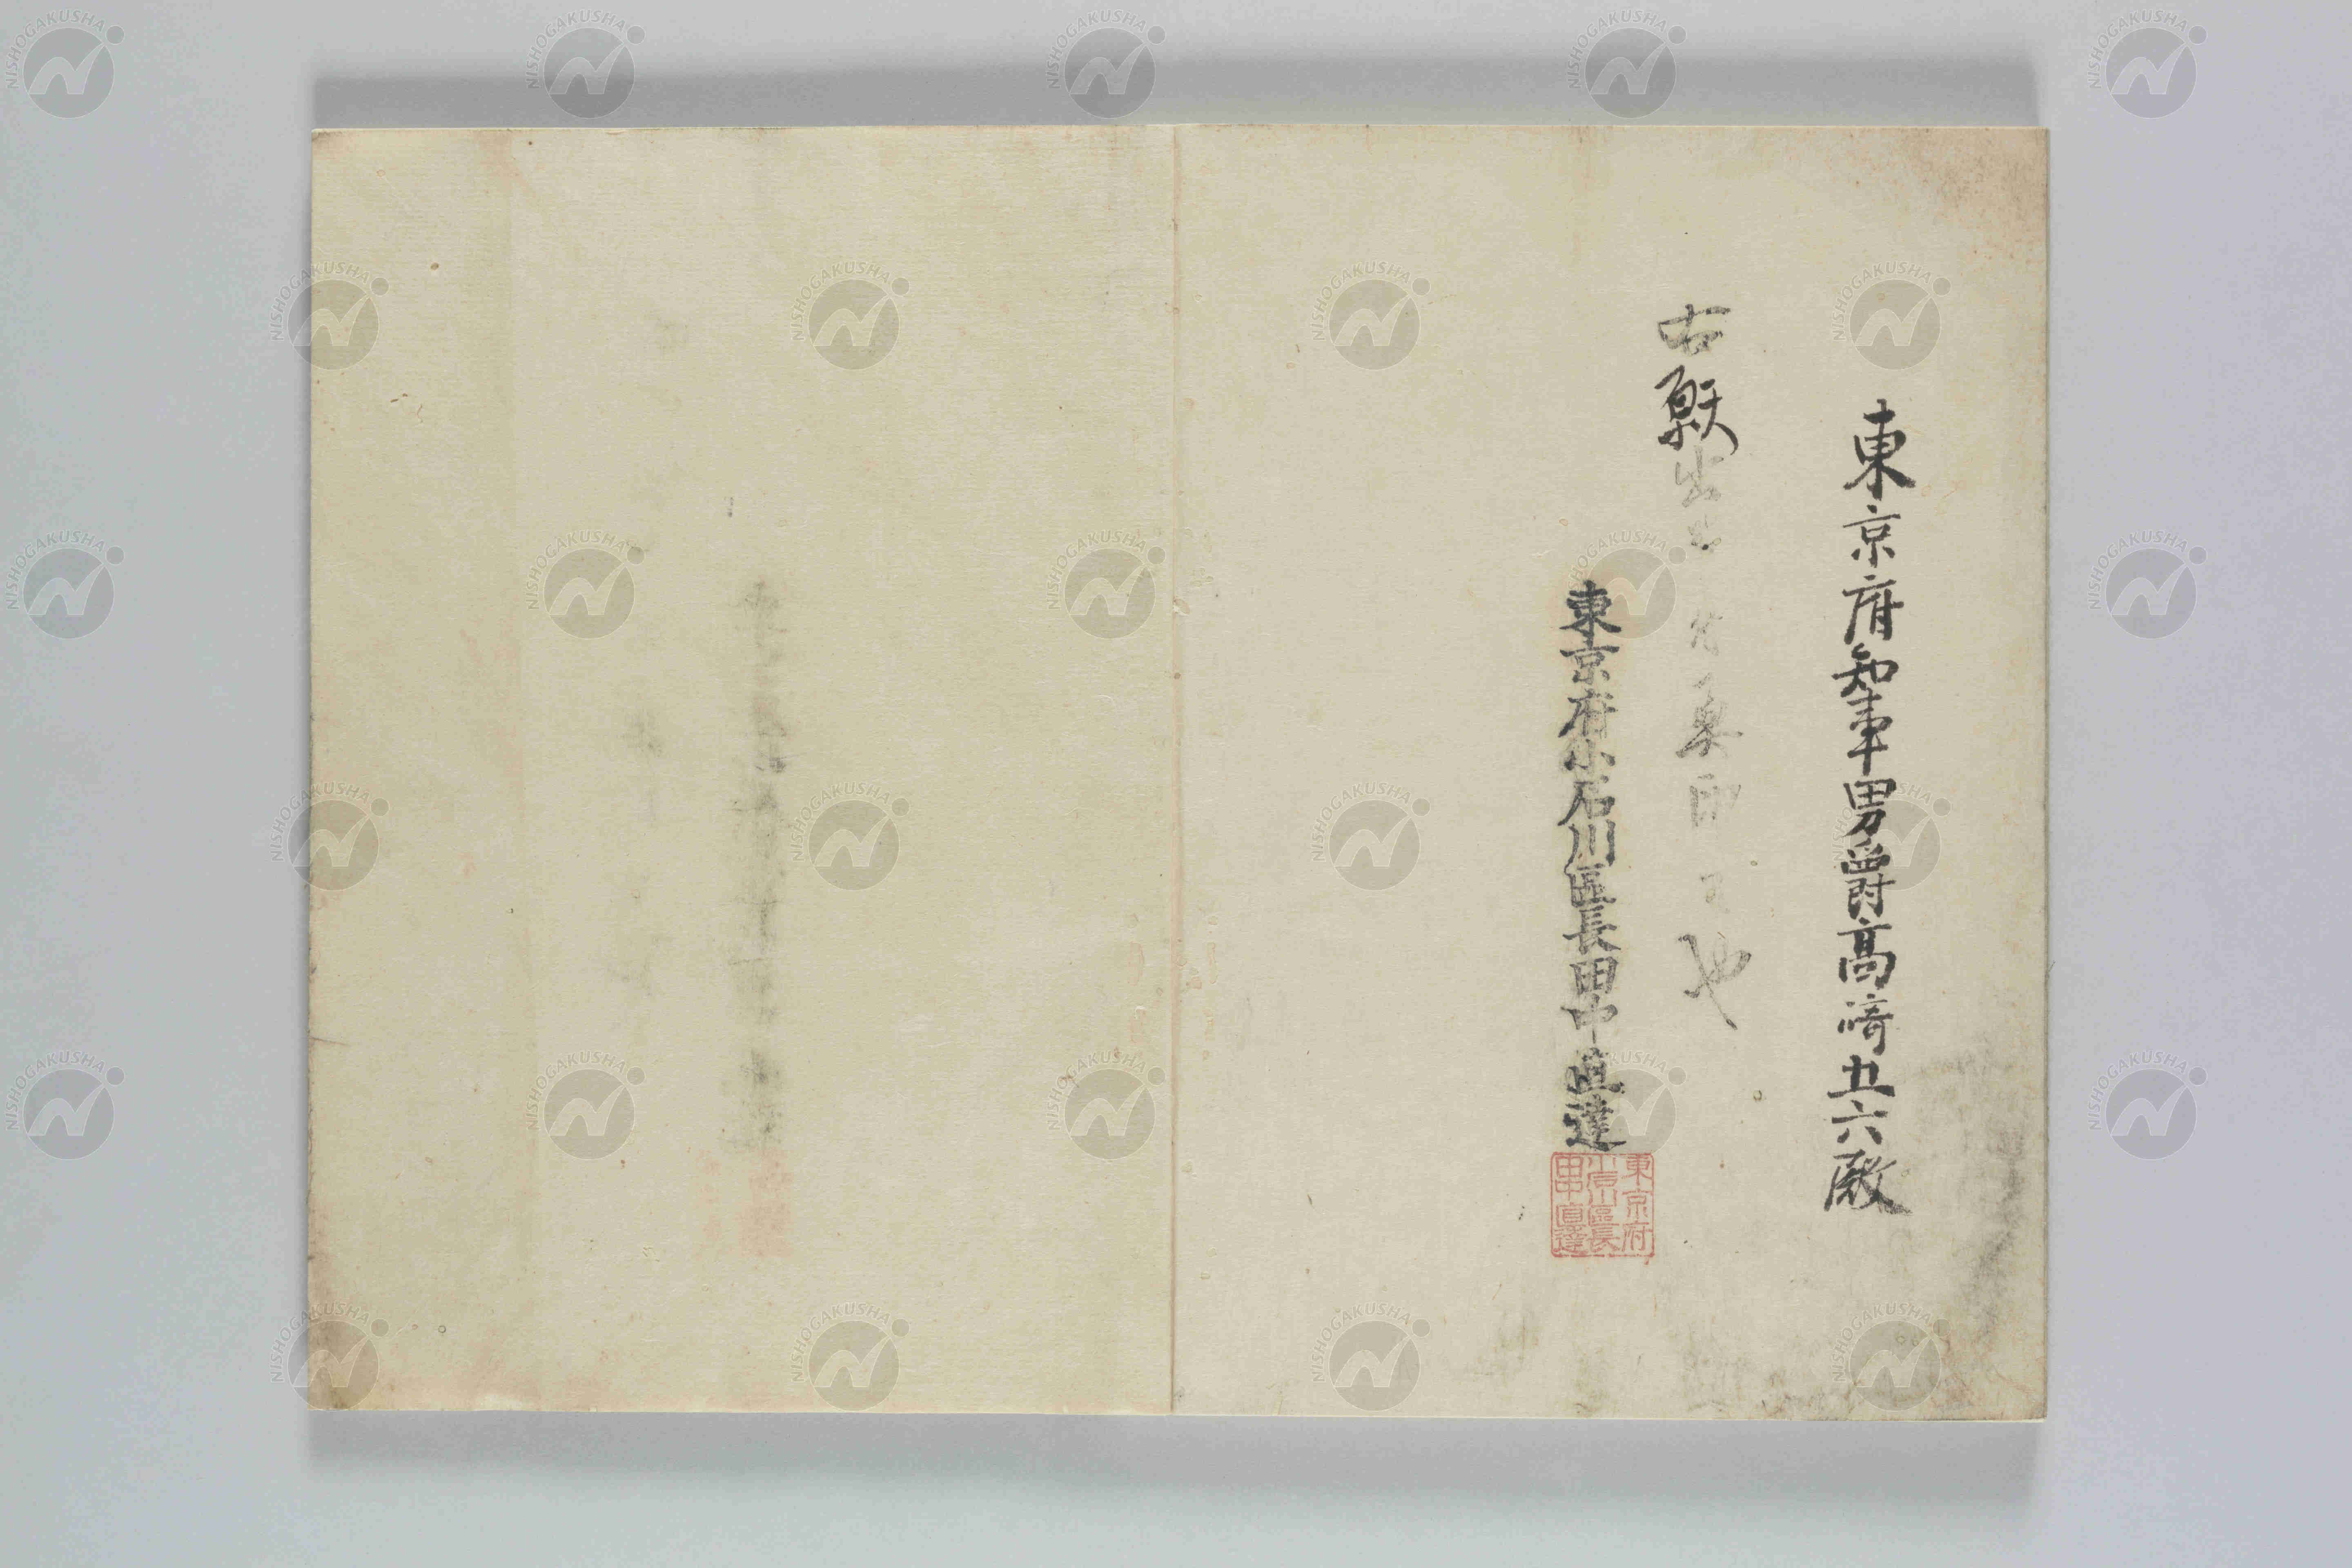 東京府知事男爵髙﨑五六殿
右願出ニ付奥印ス也
東京府小石川區長田中直達
東京府
小石川區長
田中直達
NISHOGAKUSHA